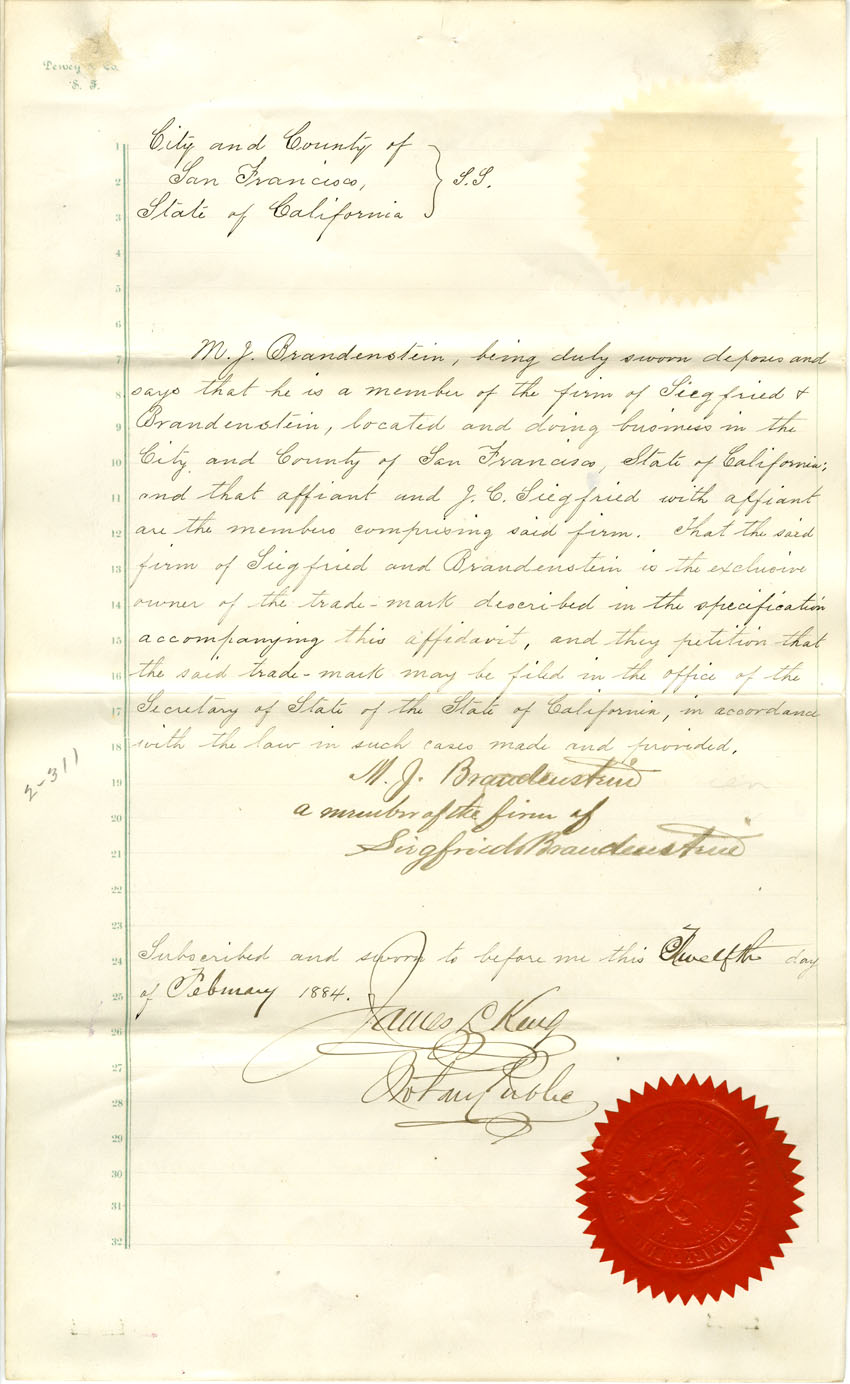 Dewey & Co.
S. F.
City and County of
San Francisco,
State of California
} S.S.
1
2
3
4
5
6
7 M. J. Brandenstein, being duly sworn deposes and
8 says that he is a member of the firm of Siegfried &
9 Brandenstein, located and doing business in the
10 City and County of San Francisco, State of California;
11 and that affiant and J. C. Siegfried with affiant
12 are the members comprising said firm. That the said
13 firm of Siegfried and Brandenstein is the exclusive
14 owner of the trade-mark described in the specification
15 accompanying this affidavit, and they petition that
16 the said trade-mark may be filed in the office of the
17 Secretary of State of the State of California, in accordance
18 with the law in such cases made and provided.
2-311
19 M. J. Brandenstein
20 a member of the firm of
21 Siegfried & Brandenstein
22
23
24 Subscribed and sworn to before me this Twelfth day
25 of February 1884.
26 James L King
27
28 Notary Public
29
30
31
32